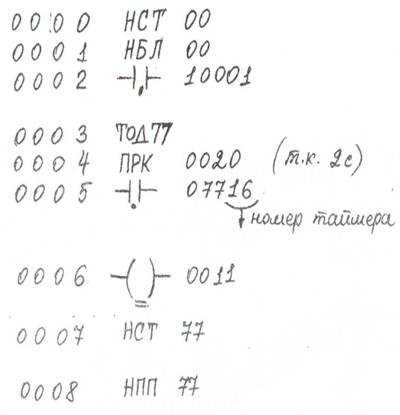 0000 НСТ 00
0001 НБЛ 00
0002 10001
0003 ТОД 77
0004 ПРК 0020 (т.к. 2с)
0005 07716
номер таймера
0006 —( )— 0011
0007 НСТ 77
0008 НПП 77